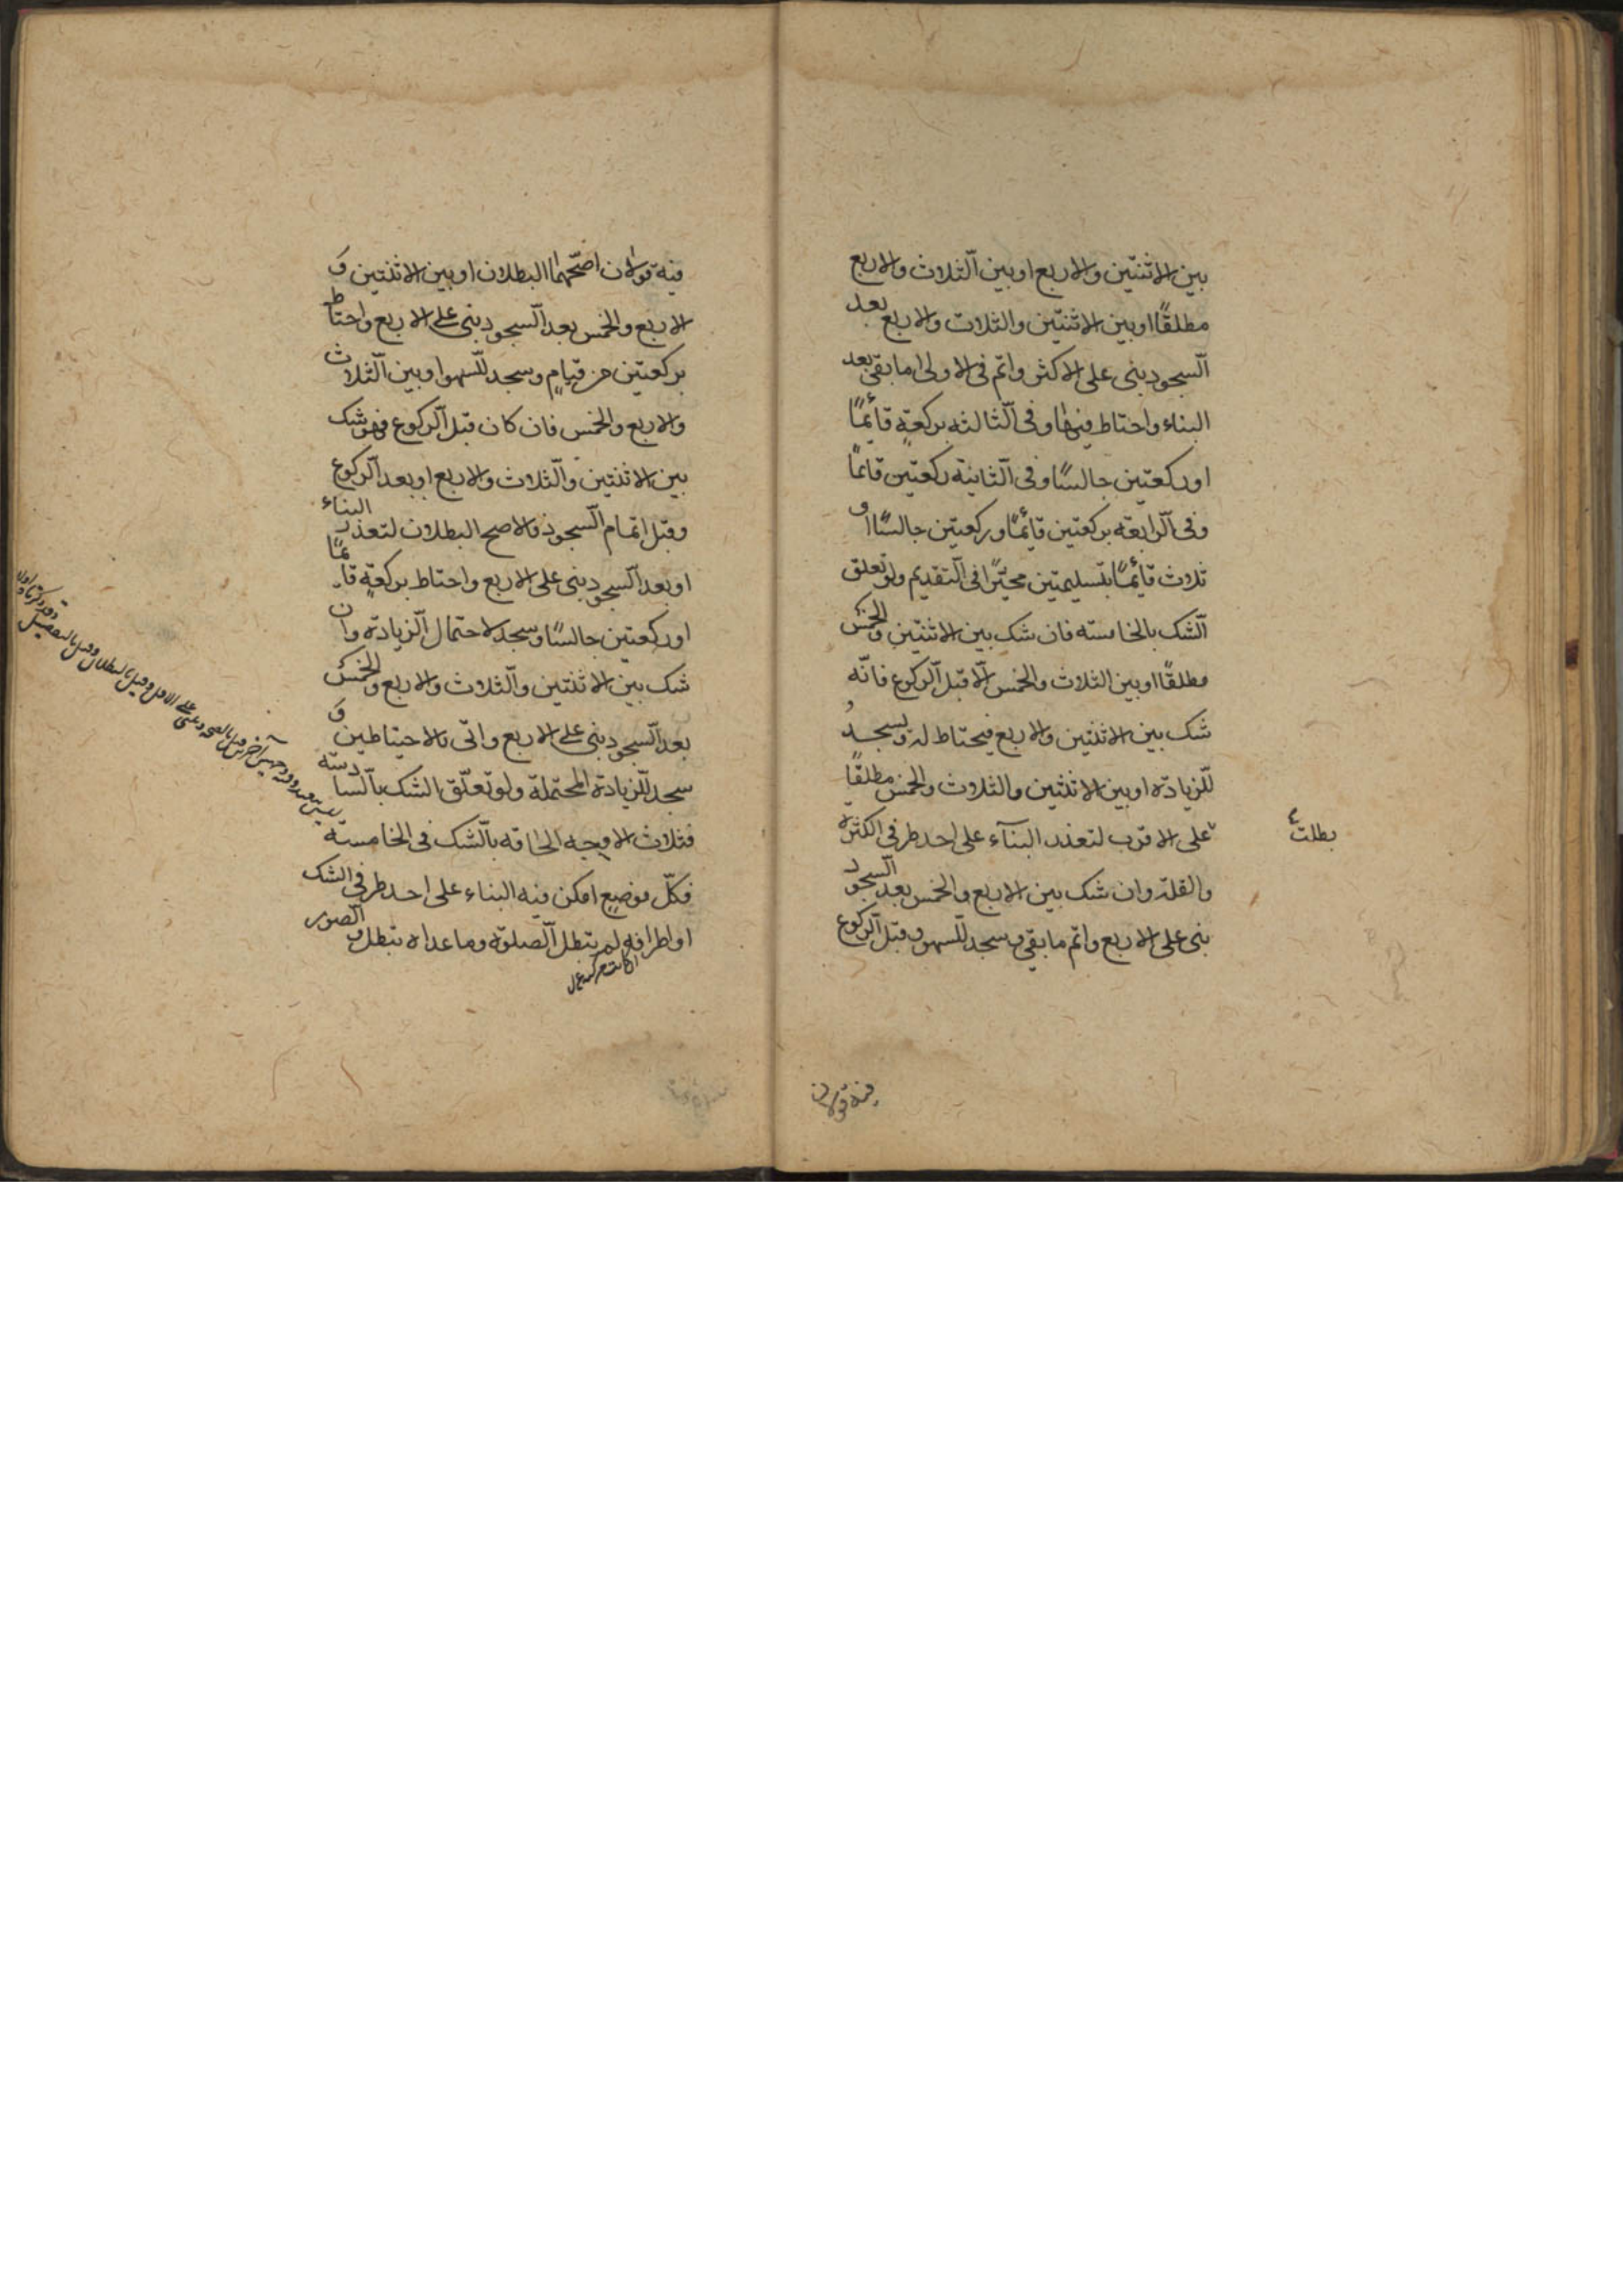 بين الاثنتين والاربع او بين الثلاث والاربع
مطلقًا او بين الاثنتين والثلاث والاربع بعد
السجود بنى على الاكثر واتم فى الاولى ما بقى بعد
البناء واحتاط فيها وفى الثالثة بركعةٍ قائمًا
او ركعتين جالسًا وفى الثانية ركعتين قائمًا
وفى الرابعة بركعتين قائمًا وركعتين جالسًا او
ثلاث قائمًا بتسليمتين مخيّرًا فى التقديم ولو تعلق
الشك بالخامسة فان شك بين الاثنتين والخمس
مطلقًا او بين الثلاث والخمس الّا قبل الركوع فانّه
شك بين الاثنتين والاربع فيحتاط له ويسجد
للزيادة او بين الاثنتين والثلاث والخمس مطلقًا
على الاقرب لتعذر البنآء على احد طرفي الكثرة
بطلت
والقلة وان شك بين الاربع والخمس بعد السجود
بنى على الاربع واتم ما بقى وسجد للسهو وقبل الركوع
فيه قولان
فيه قولان اصحّهما البطلان او بين الاثنتين و
الاربع والخمس بعد السجود بنى على الاربع واحتاط
بركعتين من قيامٍ وسجد للسهو او بين الثلاث
والاربع والخمس فان كان قبل الركوع فهو شك
بين الاثنتين والثلاث والاربع او بعد الركوع
وقبل اتمام السجود فالاصح البطلان لتعذر البناء
او بعد السجود بنى على الاربع واحتاط بركعةٍ قائمًا
او ركعتين جالسًا وسجد لاحتمال الزيادة وان
شك بين الاثنتين والثلاث والاربع والخمس
بعد السجود بنى على الاربع واتى بالاحتياطين و
سجد للزيادة المحتملة ولو تعلّق الشك بالسادسة
فثلاث الاوجه الحاقه بالشك فى الخامسة
فكلّ موضعٍ امكن فيه البناء على احد طرفي الشك
او اطرافه لم تبطل الصلوة وما عداه تبطل و الصور